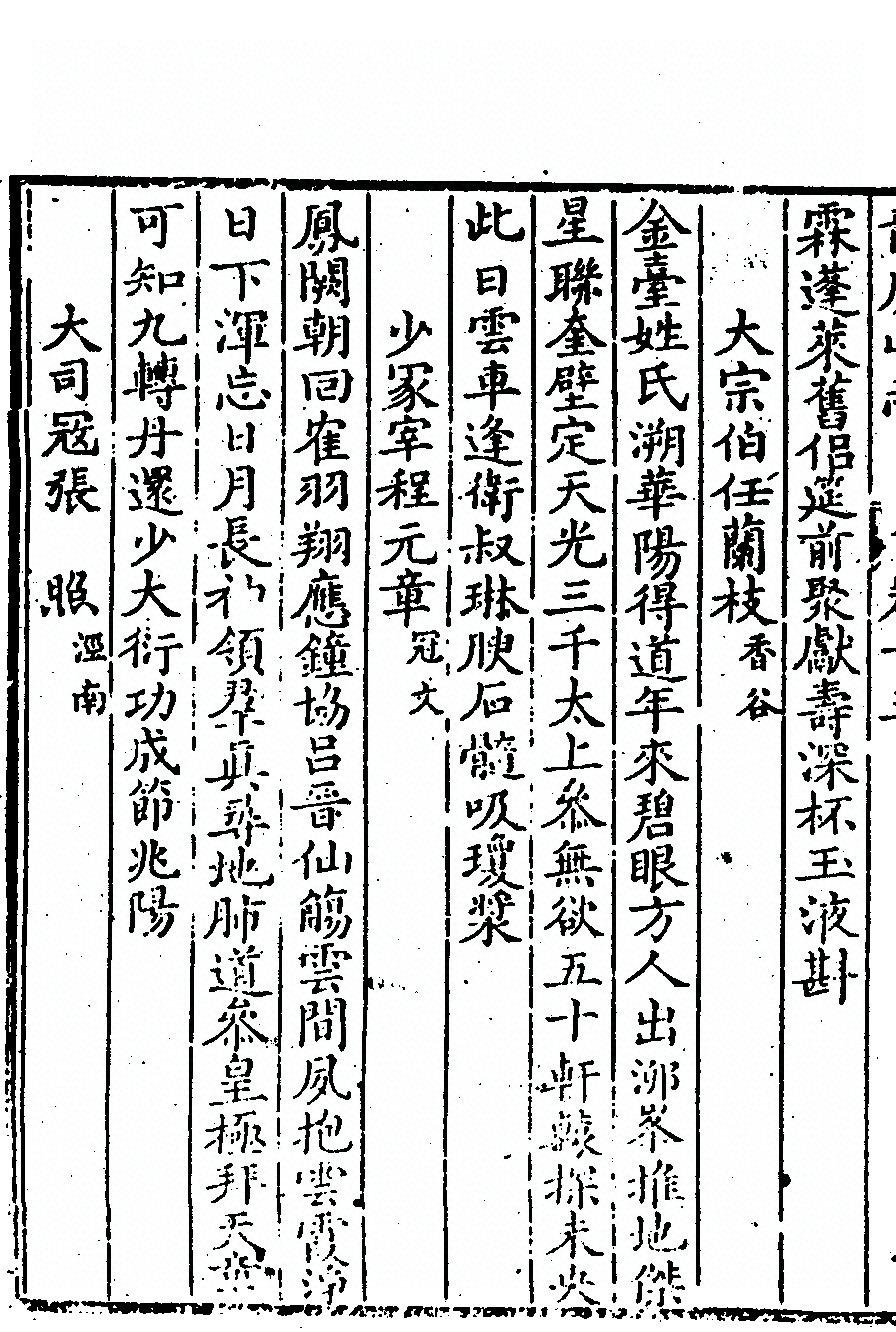 霖蓬萊舊侣筵前聚獻壽深杯玉液斟
大宗伯任蘭枝香谷
金臺姓氏溯華陽得道年來碧眼方人出泖峯推地傑
星聯奎壁定天光三千太上叅無欲五十軒轅探未央
此日雲車逢衛叔琳腴石髓吸瓊漿
少冢宰程元章冠文
鳳闕朝回雀羽翔應鐘協吕晉仙觴雲間夙抱雲霄淨
日下渾忘日月長初領羣眞尋地肺道叅皇極拜天
可知九轉丹還少大衍功成節兆陽
大司冦張照涇南